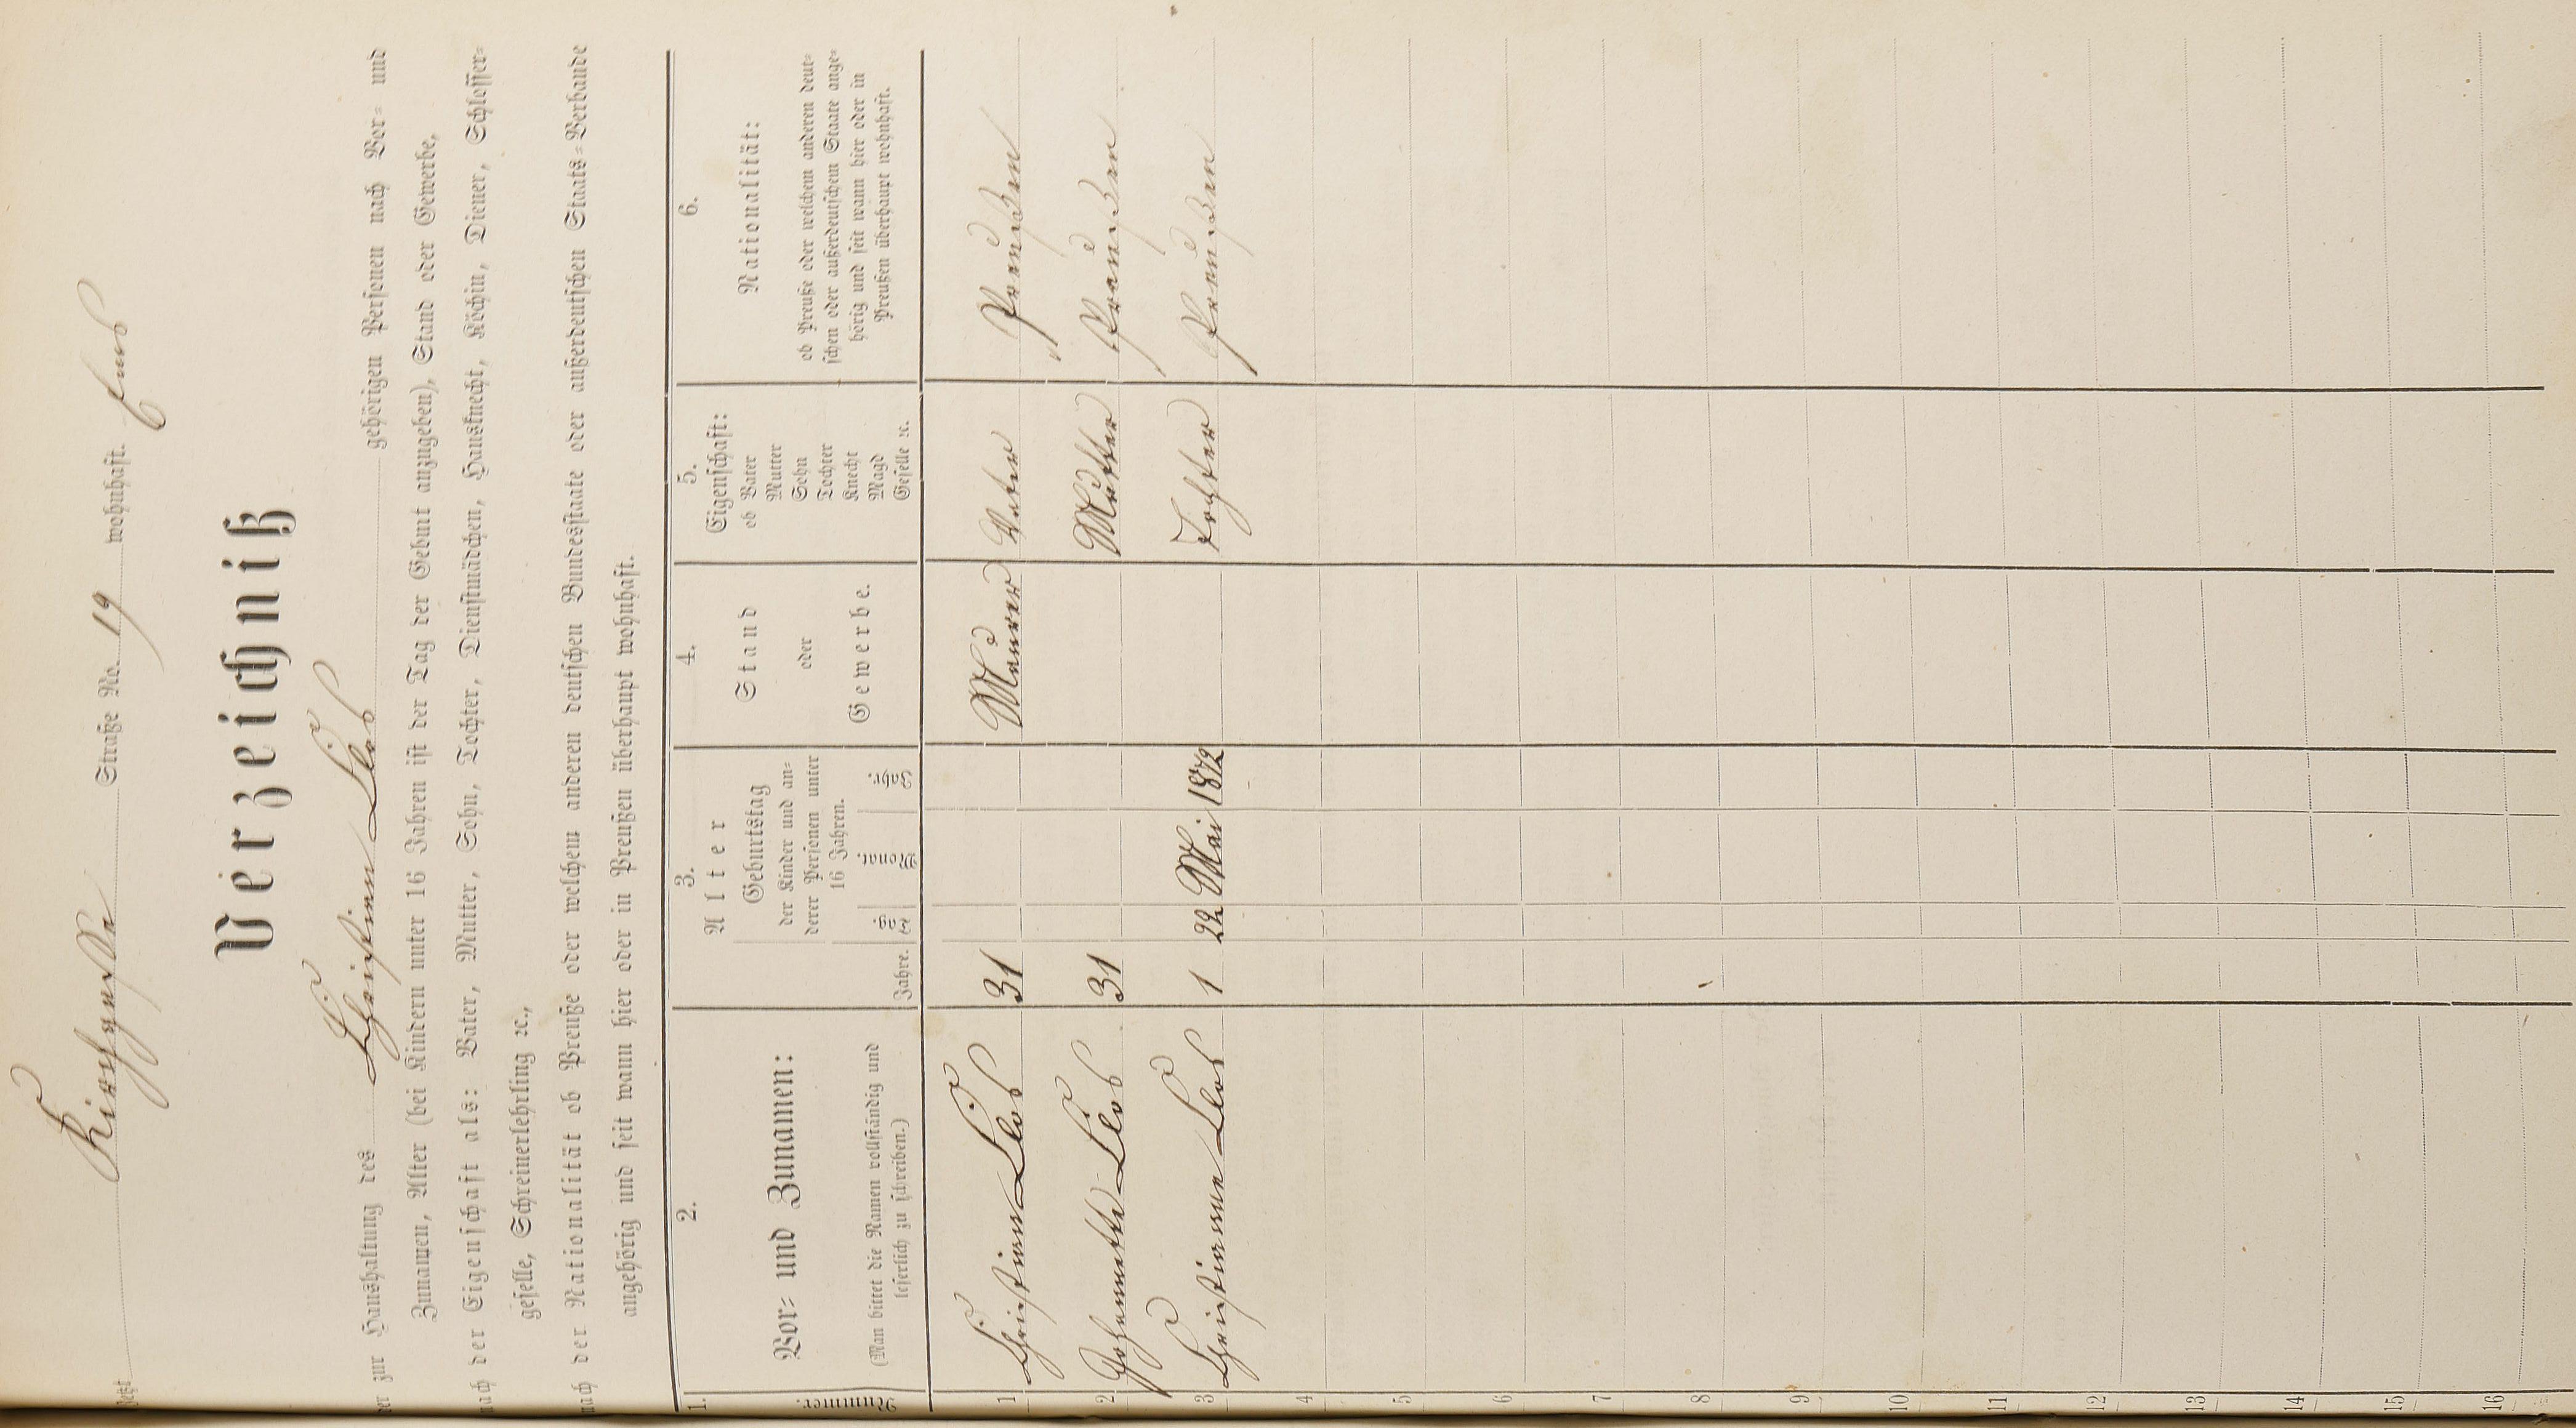 Jetzt Kirchgasse Straße No. 19 wohnhaft. Ems
Verzeichniß
der zur Haushaltung des Christian Clos gehörigen Personen nach Vor= und
Zunamen, Alter (bei Kindern unter 16 Jahren ist der Tag der Geburt anzugeben), Stand oder Gewerbe,
nach der Eigenschaft als: Vater, Mutter, Sohn, Tochter, Dienstmädchen, Hausknecht, Köchin, Diener, Schlosser=
geselle, Schreinerlehrling ꝛc.,
nach der Nationalität ob Preuße oder welchem anderen deutschen Bundesstaate oder außerdeutschen Staats=Verbande
angehörig und seit wann hier oder in Preußen überhaupt wohnhaft.
1. 2. 3. 4. 5. 6.
Nummer.
Vor= und Zunamen:
(Man bittet die Namen vollständig und
leserlich zu schreiben.)
Alter
Jahre.
Geburtstag
der Kinder und an=
derer Personen unter
16 Jahren.
Tag. Monat. Jahr.
Stand
oder
Gewerbe.
Eigenschaft:
ob Vater
Mutter
Sohn
Tochter
Knecht
Magd
Geselle ꝛc.
Nationalität:
ob Preuße oder welchem anderen deut=
schen oder außerdeutschem Staate ange=
hörig und seit wann hier oder in
Preußen überhaupt wohnhaft.
1 Christian Clos 31 Maurer Vater Preußen
2 Johannette Clos 31 Mutter Preußen
3 Christianne Clos 1 22 Mai 1872 Tochter Preußen
4
5
6
7
8
9
10
11
12
13
14
15
16